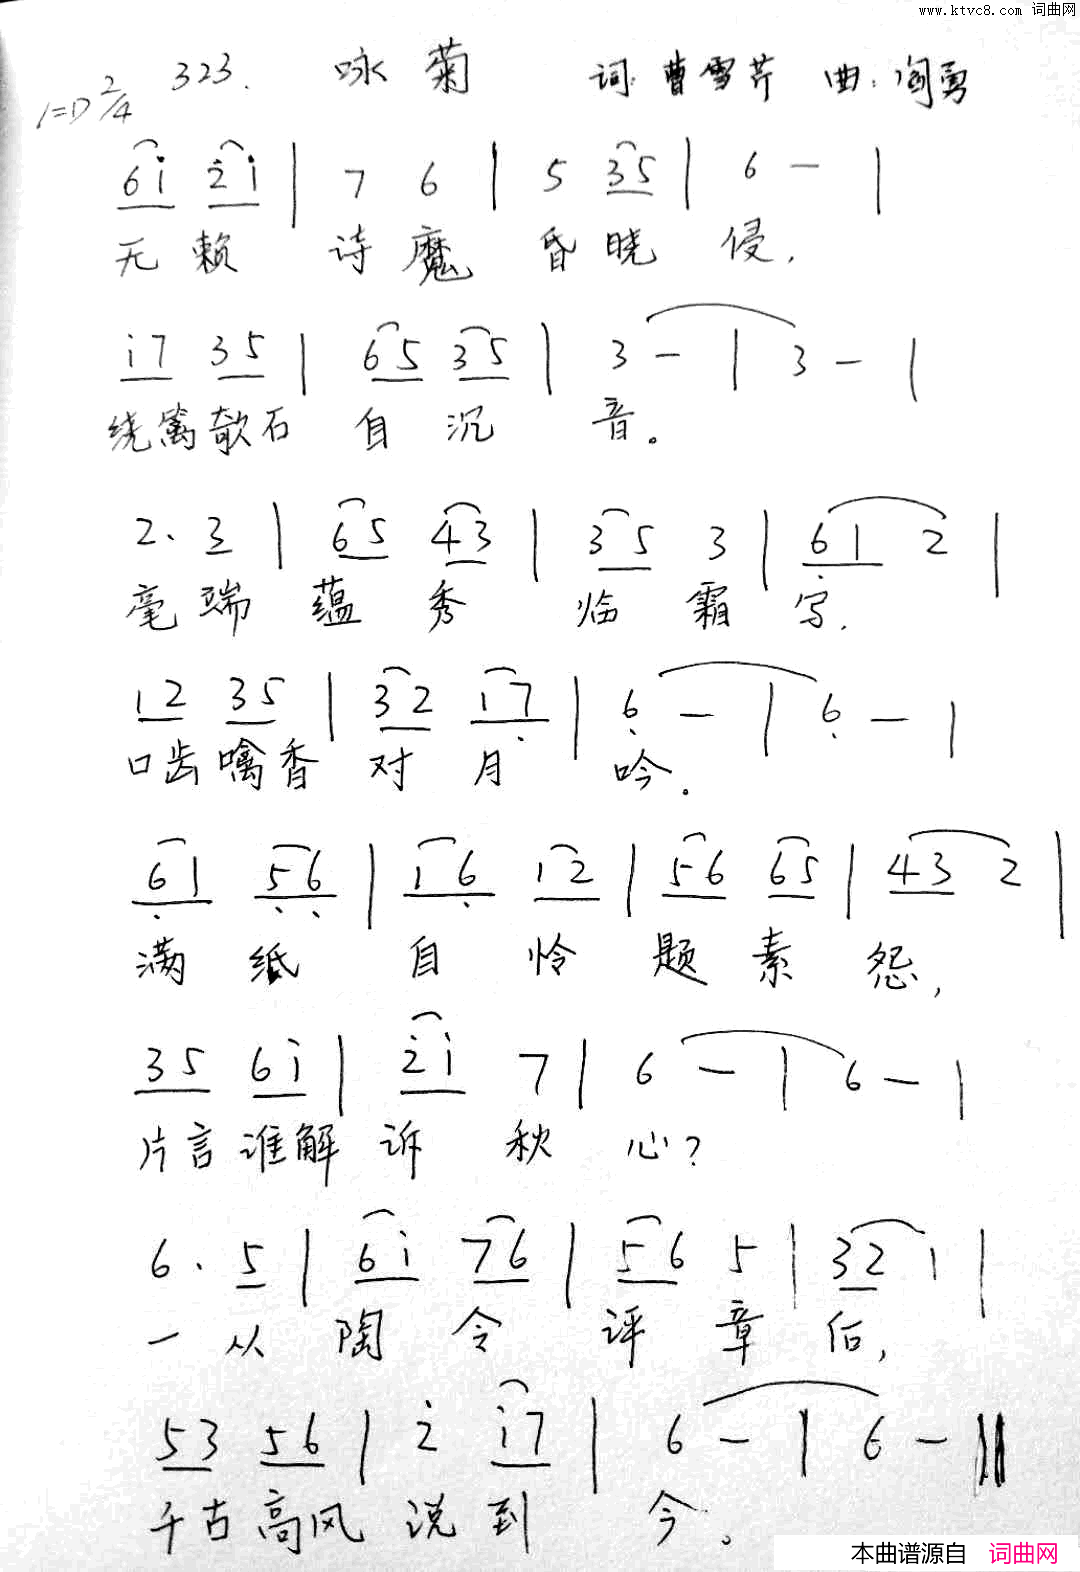 www.ktvc8.com 词曲网
323. 咏菊 词:曹雪芹 曲:阎勇
1=D 2/4
6i 2i | 7 6 | 5 35 | 6 - |
无赖 诗魔 昏晓 侵,
i7 35 | 65 35 | 3 - | 3 - |
绕篱欹石 自沉 音。
2. 3 | 65 43 | 35 3 | 61 2 |
毫端 蕴秀 临霜 写,
12 35 | 32 17 | 6 - | 6 - |
口齿噙香 对月 吟。
61 56 | 16 12 | 56 65 | 43 2 |
满纸 自怜 题素 怨,
35 6i | 2i 7 | 6 - | 6 - |
片言谁解 诉秋 心?
6. 5 | 6i 76 | 56 5 | 32 1 |
一从 陶令 评章 后,
53 56 | 2 i7 | 6 - | 6 - ||
千古高风 说到 今。
本曲谱源自 词曲网